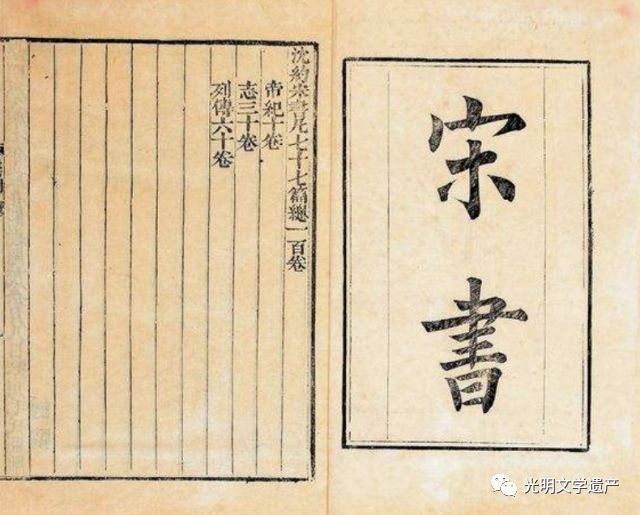 宋書
沈約宋書凡七十七篇總一百卷
帝紀十卷
志三十卷
列傳六十卷
光明文学遗产